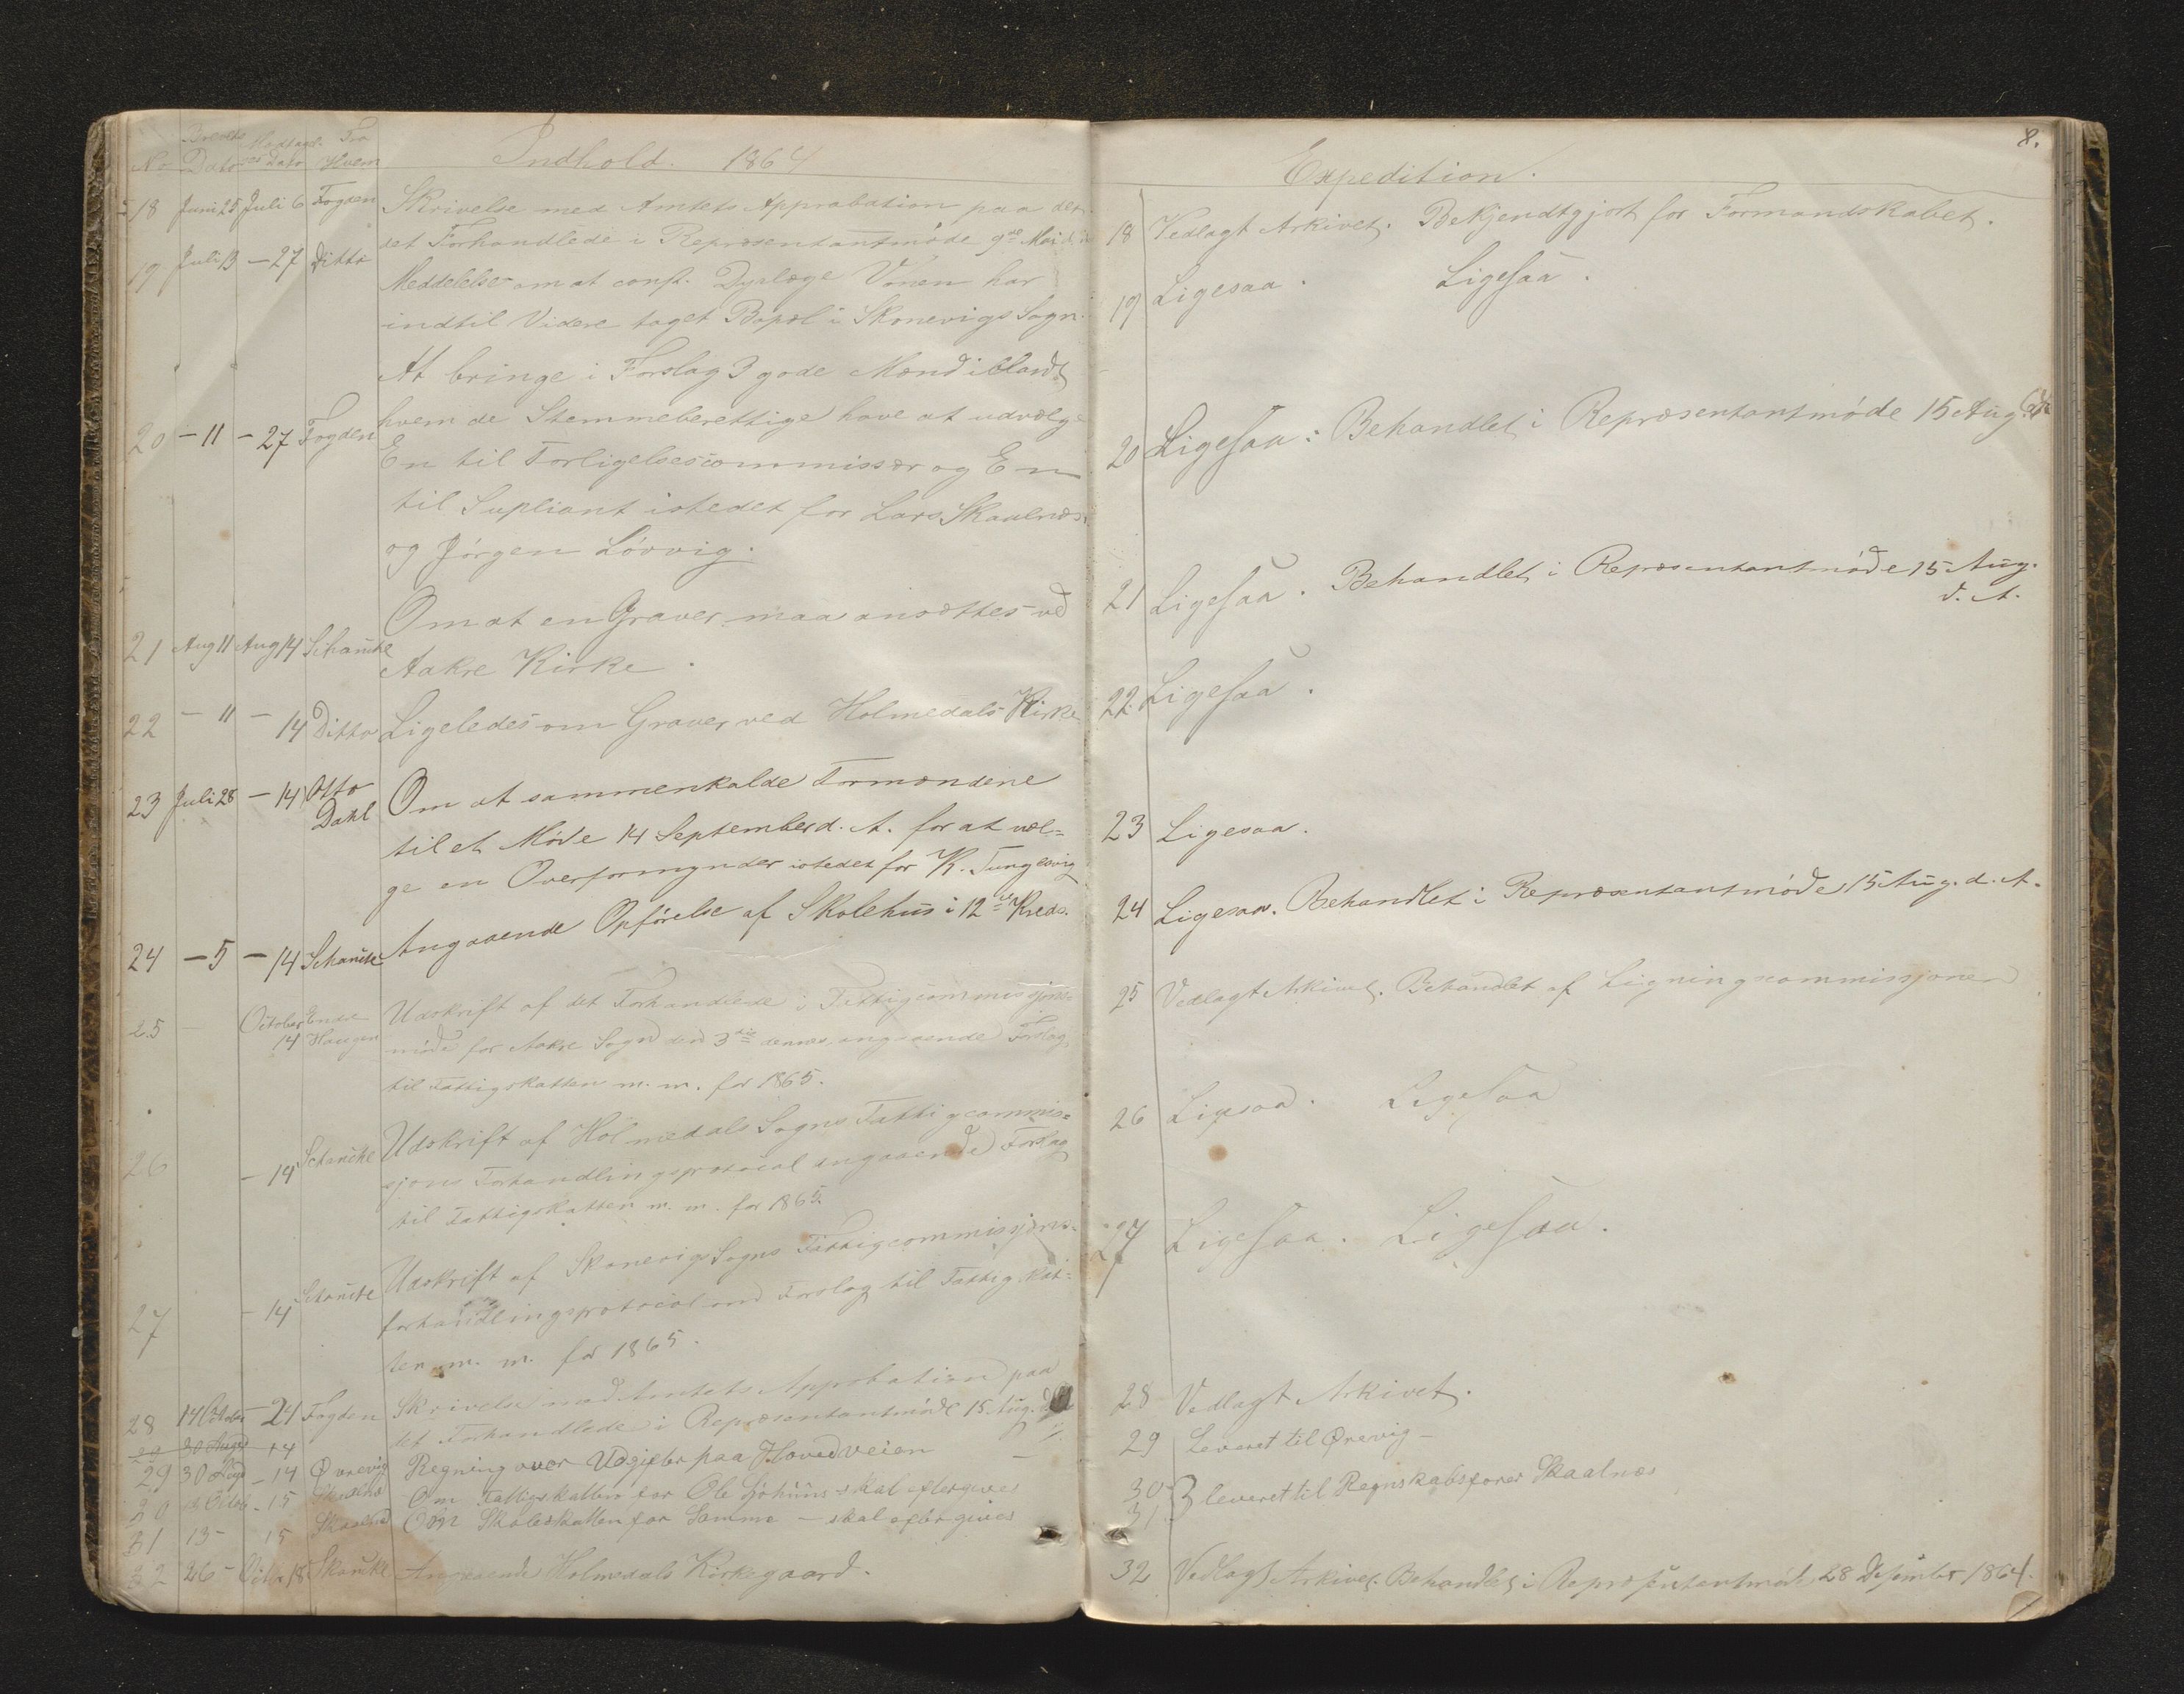 No Brevets Dato Modtagel- ses Dato Fra Hvem Indhold. 1864
18 Juni 25 Juli 6 Fogden Skrivelse med Amtets Approbation paa det
det Forhandlede i Repræsentantmöde 9de Mai d. A.
19 Juli 13 - 27 Ditto Meddelelse om at const. Dyrlæge Vonen har
indtil Videre taget Bopæl i Skonevigs Sogn.
At bringe i Forslag 3 gode Mænd iblandt
20 - 11 - 27 Fogden hvem de Stemmeberettige have at udvælge
En til Forligelsescommissær og En
til Supliant istedet for Lars Skaalnæs
og Jörgen Lövvig.
Om at en Graver maa ansættes ved
21 Aug 11 Aug 14 Schancke Aakre Kirke.
22 - 11 - 14 Ditto Ligeledes om Graver ved Holmedals Kirke
23 Juli 28 - 14 Otto Dahl Om at sammenkalde Formændene
til et Möde 14 September d. A. for at væl=
ge en Overformynder istedet for K. Tungesvig
24 - 5 - 14 Schancke Angaaende Opförelse af Skolehus i 12te Kreds.
25 October 14 Endre Haugen Udskrift af det Forhandlede i Fattigcommissjons=
möde for Aakre Sogn den 3die dennes, angaaende Forslag
til Fattigskatten m. m. for 1865.
26 - 14 Schancke Udskrift af Holmedals Sogns Fattigcommis=
sjons Forhandlingsprotocol angaaende Forslag
til Fattigskatten m. m. for 1865.
27 - 14 Schancke Udskrift af Skonevigs Sogns Fattigcommissjons=
forhandlingsprotocol med Forslag til Fattigskat=
ten m. m. for 1865.
28 14 October - 24 Fogden Skrivelse med Amtets Approbation paa
det Forhandlede i Repræsentantmöde 15. Aug. d. A.
29 30 Augs 14
29 30 Augs - 14 Ørevig Regning over Udgifter paa Hovedveien
30 Octob - 15 Skaalnæs Om Fattigskatten for Ole Sjöhuus skal eftergives
31 13 - 15 Skaalnæs Om Skoleskatten for Samme - skal eftergives
32 26 - Octbr 18 Skancke Angaaende Holmedals Kirkegaard.
8.
Expedition.
18 Vedlagt Arkivet. Bekjendtgjort for Formandskabet.
19 Ligesaa. Ligesaa.
20 Ligesaa: Behandlet i Repræsentantmöde 15 Aug. d. A.
21 Ligesaa. Behandlet i Repræsentantmöde 15 Aug.
d. A.
22. Ligesaa.
23 Ligesaa.
24 Ligesaa. Behandlet i Repræsentantmöde 15 Aug. d. A.
25 Vedlagt Arkivet. Behandlet af Ligningscommissjonen
26 Ligesaa. Ligesaa
27 Ligesaa. Ligesaa.
28 Vedlagt Arkivet.
29 Leveret til Ørevig -
30
31 } leveret til Regnskabsförer Skaalnæs
32 Vedlagt Arkivet. Behandlet i Repræsentantmöde 28 Desember 1864.